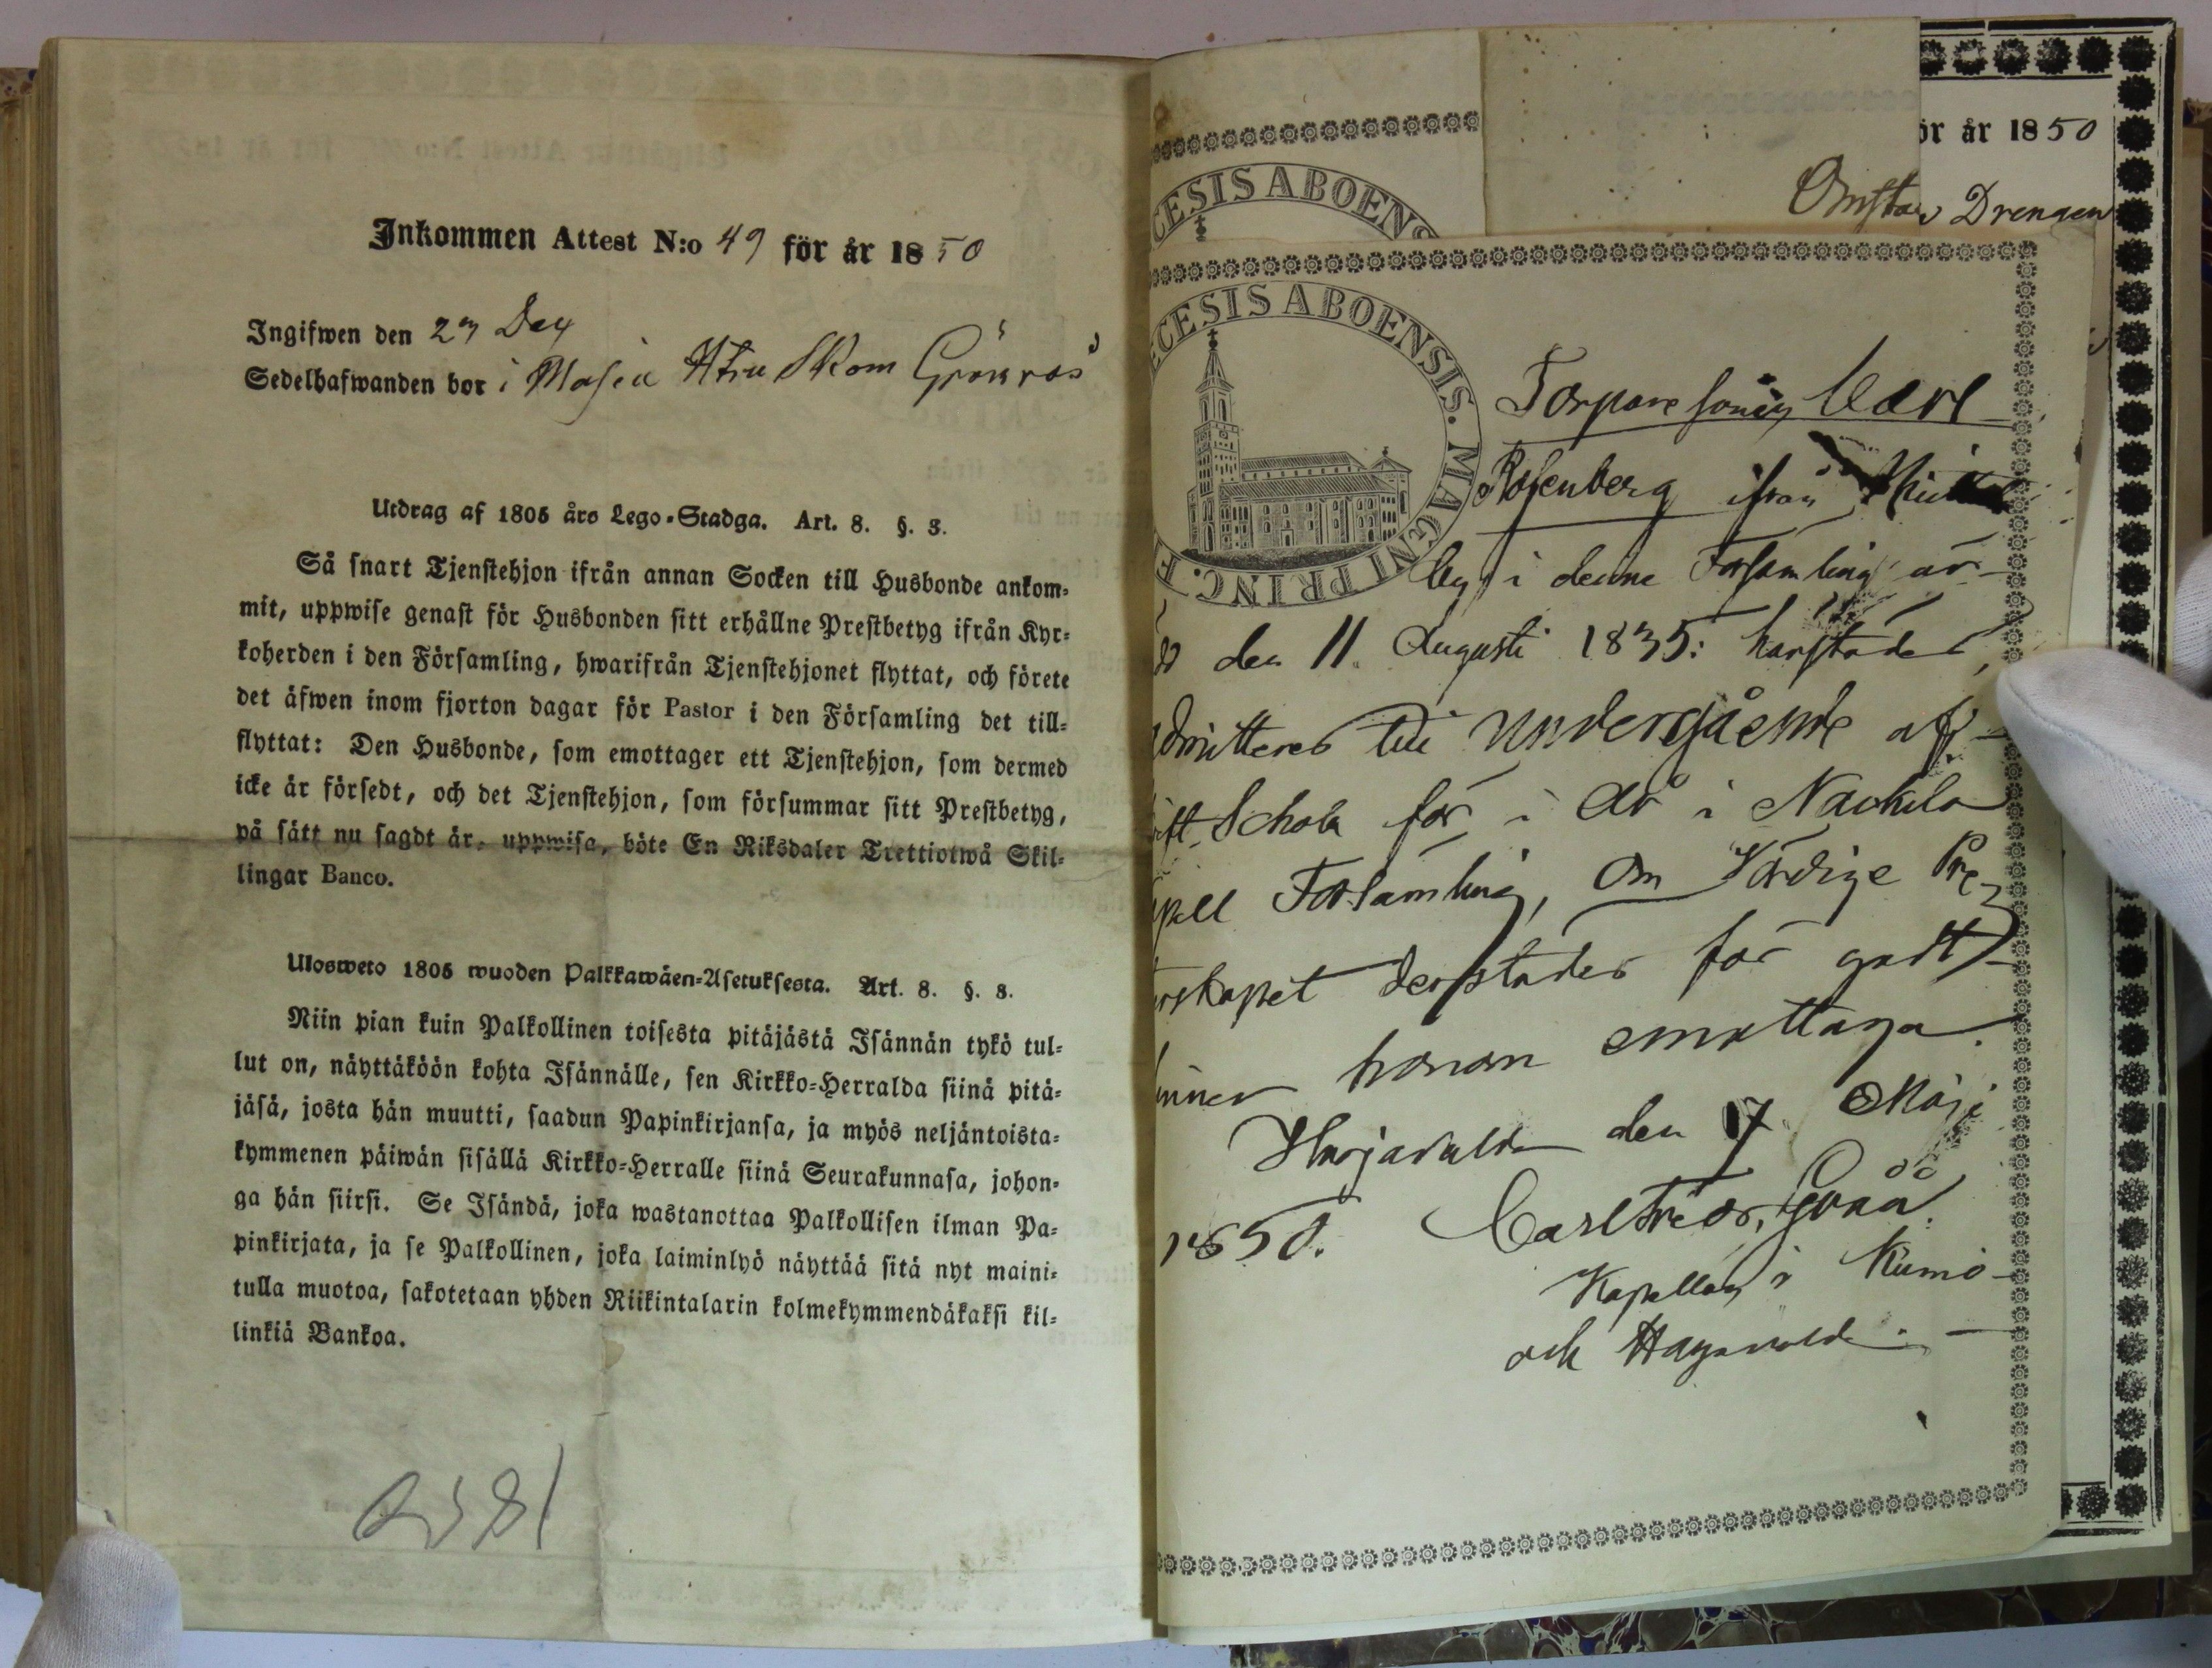 Inkommen Attest N:o 49 för år 1850
Ingifwen den 27 Dec
Sedelhafwanden bor i Skom Grönroos
Utdrag af 1805 års Lego-Stadga. Art. 8. §. 3.
Så snart Tjenstehjon ifrån annan Socken till Husbonde ankom-
mit, uppwise genast för Husbonden sitt erhållne Prestbetyg ifrån Kyr-
koherden i den Församling, hwarifrån Tjenstehjonet flyttat, och förete
det äfwen inom fjorton dagar för Pastor i den Församling det till-
flyttat: Den Husbonde, som emottager ett Tjenstehjon, som dermed
icke är försedt, och det Tjenstehjon, som försummar sitt Prestbetyg,
på sätt nu sagdt är, uppwisa, böte En Riksdaler Trettiotwå Skil-
lingar Banco.
Ulosweto 1805 wuoden Palkkawäen-Asetuksesta. Art. 8. §. 3.
Niin pian kuin Palkollinen toisesta pitäjästä Isännän tykö tul-
lut on, näyttäköön kohta Isännälle, sen Kirkko-Herralda siinä pitä-
jäsä, josta hän muutti, saadun Papinkirjansa, ja myös neljäntoista-
kymmenen päiwän sisällä Kirkko-Herralle siinä Seurakunnasa, johon-
ga hän siirsi. Se Isändä, joka wastanottaa Palkollisen ilman Pa-
pinkirjata, ja se Palkollinen, joka laiminlyö näyttää sitä nyt maini-
tulla muotoa, sakotetaan yhden Riikintalarin kolmekymmendäkaksi kil-
linkiä Bankoa.
ör år 1850
Drengen
CESIS ABOENS
ECESIS ABOENSIS. MAGNI PRINC. F
Torpare sonen Carl
Rosenberg ifrån
by i denne Församling är
d den 11 Augusti 1835: harstädes
dmitteras till undergående af
ift Schola för i år i Nackila
pell Församling, om Värdige Pre-
rskapet derstädes för godt
inner honom emottaga.
Harjavalda den 17 Maji
1850. Carl Fredr. Gråå
Kapellan i Kumo
och Harjavalda